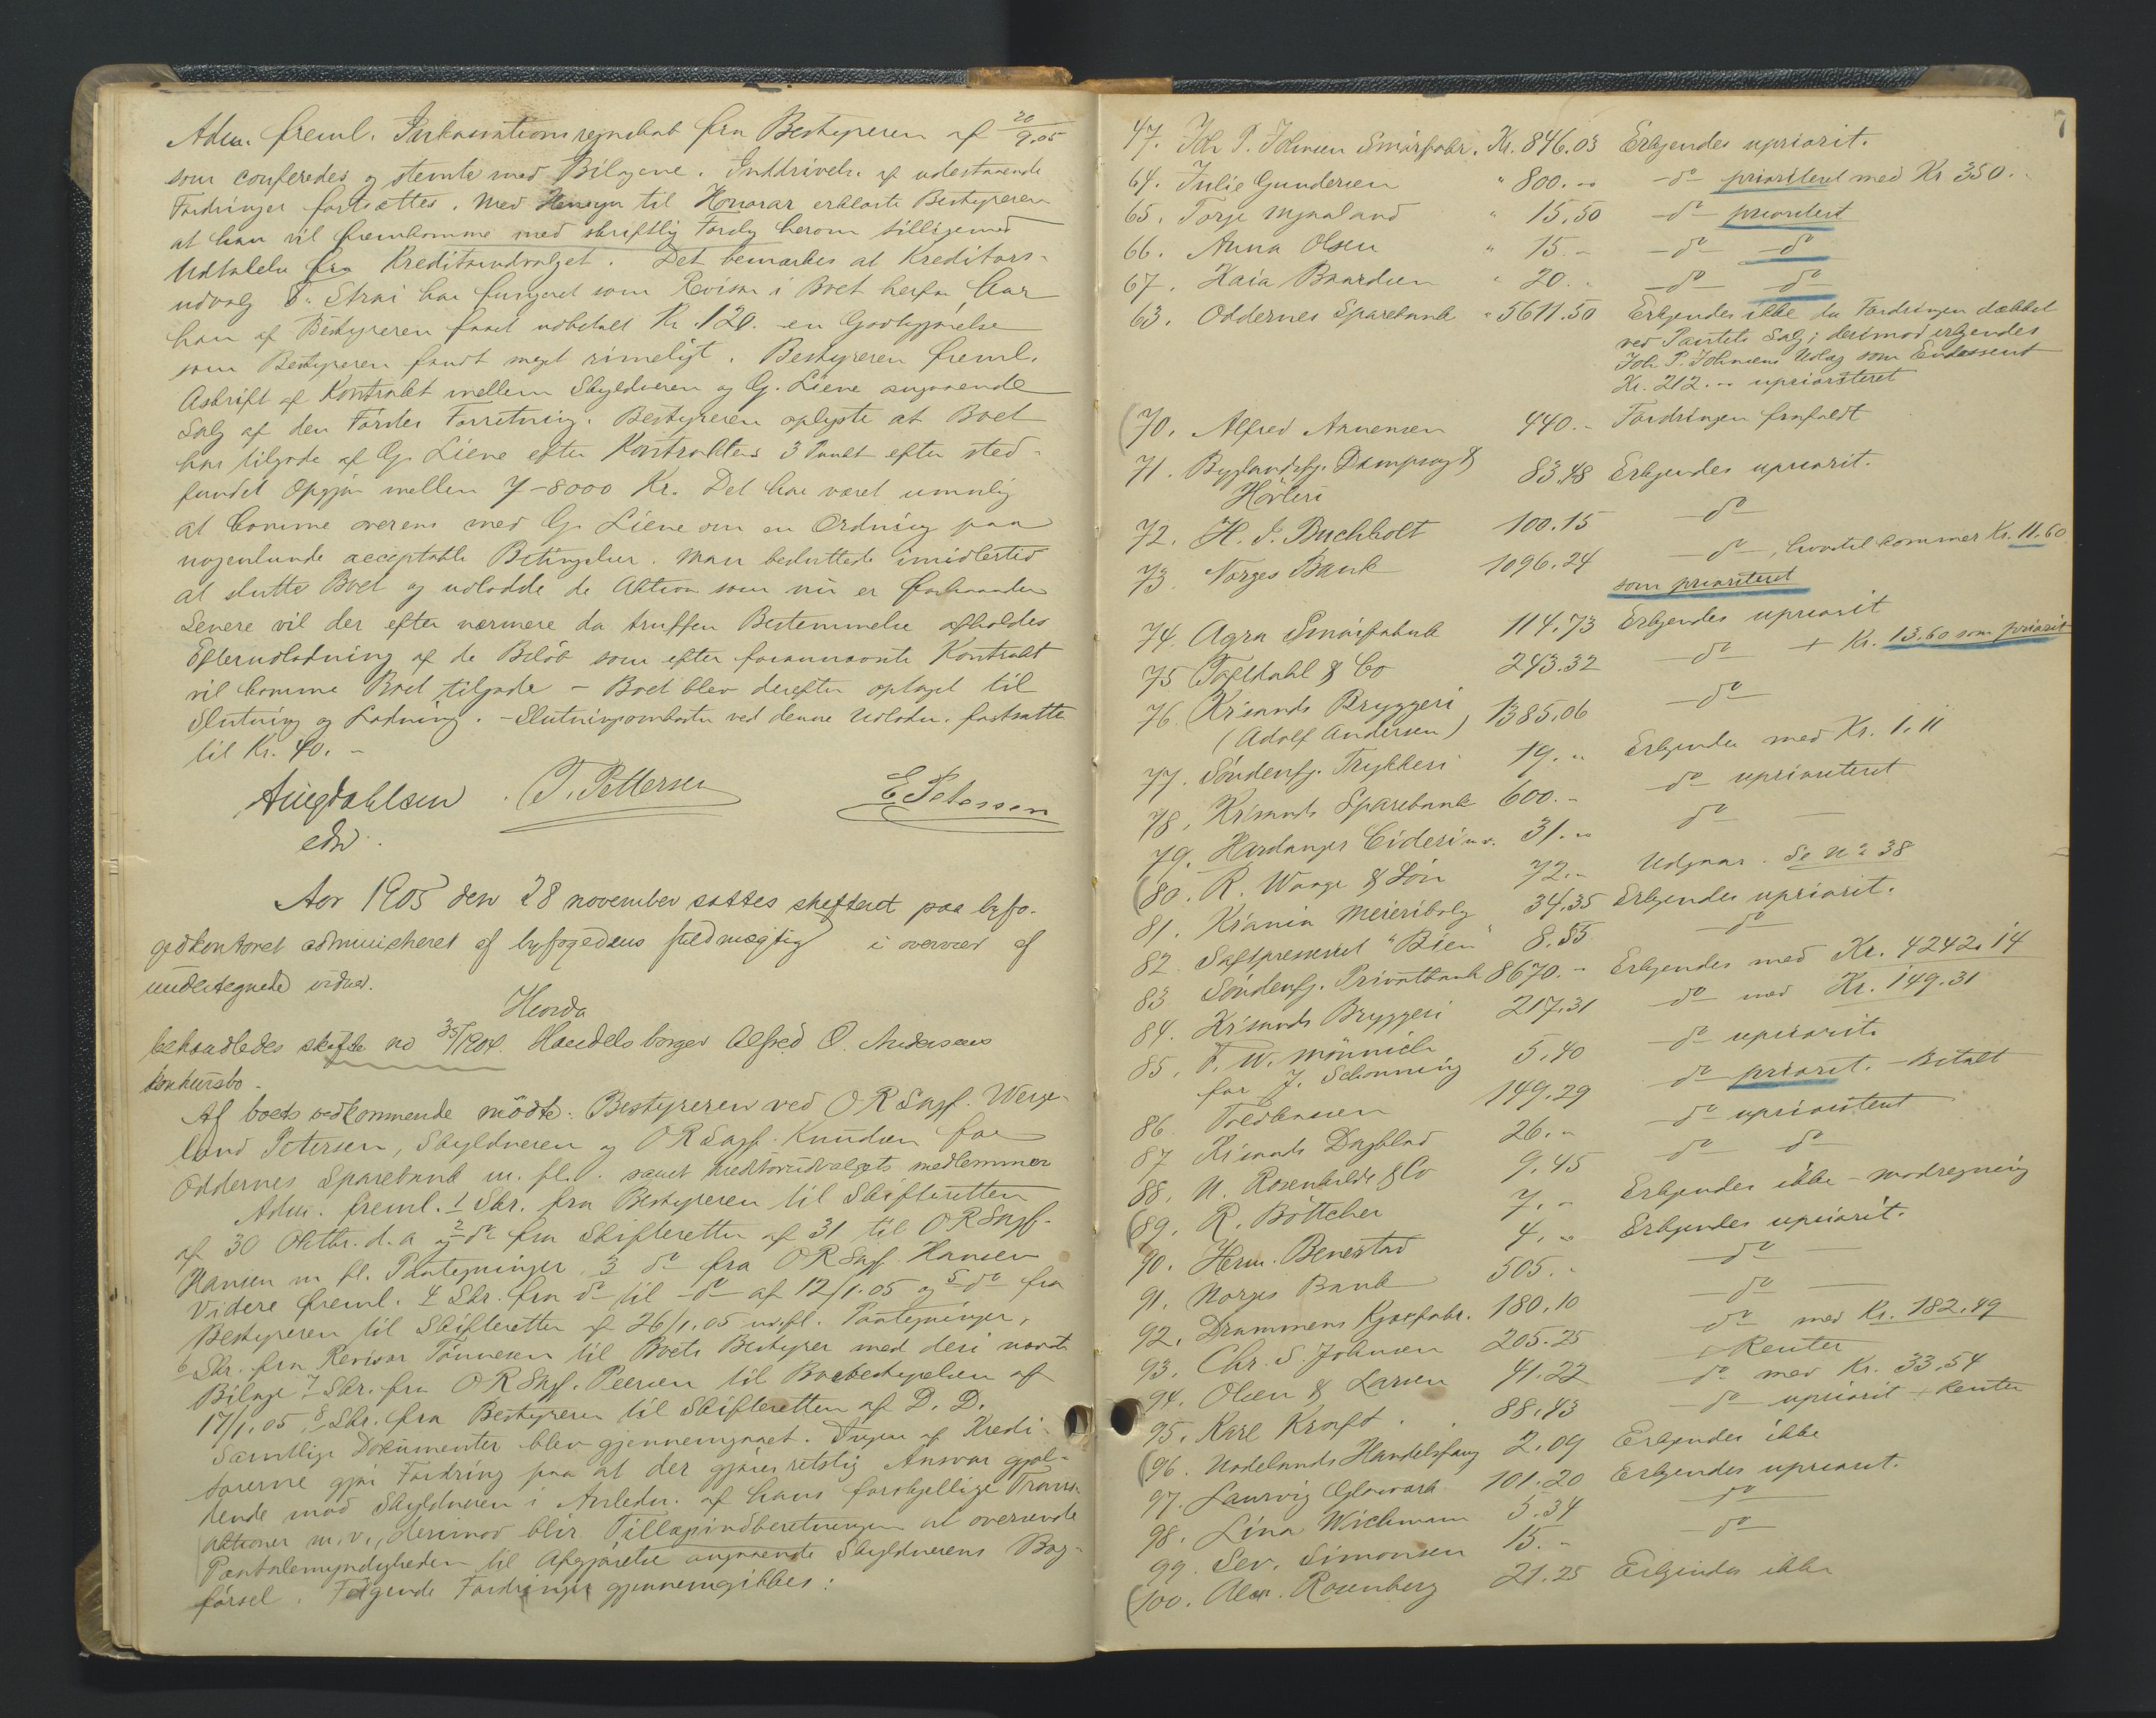 Adm. freml. Inkassationsregnskab fra Bestyreren af 20/9.05
som conferedes og stemte med Bilagene. Inddrivelse af udestaaende
Fordringer fortsættes. Med Hensyn til Honorar erklærte Bestyreren
at han vil fremkomme med skriftlig Fordg herom tilligemed
Udtalelse fra Kreditorudvalget. Det bemærkes at Kreditors-
udvalg T. Strai har fungeret som Revisor i Boet herfor har
han af Bestyreren faaet udbetalt Kr. 120. en Godtgjørelse
som Bestyreren fandt meget rimeligt. Bestyreren freml.
Afskrift af Kontrakt mellem Skyldneren og G. Liene angaaende
Salg af den Førstes Forretning. Bestyreren oplyste at Boet
har tilgode af G. Liene efter Kontraktens 3 Punkt efter sted-
fundet Opgjør mellem 7-8000 Kr. Det har været umulig
at komme overens med G. Liene om en Ordning paa
nogenlunde acceptable Betingelser. Man besluttede imidlertid
at slutte Boet og udlodde de Aktiva som nu er forhaanden
Senere vil der efter nærmere da truffen Bestemmelse afholdes
Efterudlodning af de Beløb som efter forannævnte Kontrakt
vil komme Boet tilgode - Boet blev derefter optaget til
Slutning og Lodning. - Slutningsomkostn. ved denne Udlodn. fastsattes
til Kr. 40. -
T. Pettersen E. Petersen
edv.
Aar 1905 den 28 november sattes skifteret paa byfo-
gedkontoret administreret af byfogedens fuldmægtig i overvær af
undertegnede vidner.
Hvorda
behandledes skifte no 35/1904. Handelsborger Alfred O. Andersens
konkursbo.
Af boets vedkommende mødte: Bestyreren ved O R Sagf. Werge-
land Petersen, Skyldneren og O R Sagf. Knudsen for
Oddernes Sparebank m. fl. samt kreditorudvalgets medlemmer
Adm. freml. 1 Skr. fra Bestyreren til Skifteretten
af 30 Oktbr. d. a og 2 do fra Skifteretten af 31 til O R Sagf.
Hansen m fl. Paategninger, 3 do fra O R Sagf. Hansen
Videre freml. 4 Skr. fra do til do af 12/1.05 og 5 do fra
Bestyreren til Skifteretten af 26/1.05 m. fl. Paategninger,
6 Skr. fra Revisor Tønnesen til Boets Bestyrer med deri nævnte
Bilage 7 Skr. fra O R Sagf. Peersen til Bobestyrelsen af
17/1.05, 8 Skr. fra Bestyreren til Skifteretten af D. D.
Samtlige Dokumenter blev gjennemgaaet. Ingen af Kredi-
torerne gjør Fordring paa at der gjøres retslig Ansvar gjæl-
dende mod Skyldneren i Anledn. af hans forskjellige Trans-
aktioner m. v., derimod blir Tillægsindberetningen at oversende
Paatalemyndigheden til Afgjørelse angaaende Skyldnerens Bog-
førsel. Følgende Fordringer gjennemgikkes:
7
47. Joh P. Johnsen Smørfabr. Kr. 846.03 Erkjendes upriorit.
64. Julie Gundersen " 800.- -do- prioriteret med Kr 350.-
65. Torje Mjaaland " 15.50 -do- prioritert
66. Anna Olsen " 15.- -do- -do-
67. Kaia Baardsen " 20.- -do- -do-
63. Oddernes Sparebank " 5611.50 Erkjendes ikke da Fordringen dækket
ved Pantets Salg; derimod erkjendes
Joh. P. Johnsens Udlæg som Endossent
Kr. 212.- uprioriteret
(70. Alfred Arnensen 440.- Fordringen frafaldt
71. Byglandsfj. Dampsag & 83.48 Erkjendes upriorit.
Høvleri
72. H. J. Buchholt 100.15 -do-
73. Norges Bank 1096.24 -do-, hvortil kommer Kr. 11.60
som prioriteret
74. Agra Smørfabrik 114.73 Erkjendes upriorit
75 Tofldahl & Co 243.32 -do- + Kr. 13.60 som priorit
76. Kr'sands Bryggeri 1385.06 -do-
(Adolf Andersen)
77. Søndenfj. Trykkeri 19.- Erkjendes med Kr. 1,11
78. Kr'sands Sparebank 600.- do uprioriteret
79. Hardanger Cideri 31.- do -
(80. R. Waage & Søn 72.- Udgaar. Se No 38
81. Kr'ania Meieribolg 34.35 Erkjendes upriorit.
82. Saftpresseriet "Bien" 8.55 -do-
83 Søndenfj. Privatbank 8670.- Erkjendes med Kr. 4242.14
84. Kr'sands Bryggeri 217.31 -do- med Kr. 149.31
85. F. W. Mönnich 5.40 -do- upriorit.
for J. Schønning
86 Toldkassen 149.29 do priorit. - Betalt
87 Kr'sands Dagblad 26.- -do- uprioriteret
88. N. Rosenkilde & Co 9.45 do do
(89. R. Böttcher 7.- Erkjendes ikke - modregning
90. Herm. Benestad 4.- Erkjendes upriorit.
91. Norges Bank 505.- -do-
92. Drammens Kjexfabr. 180.10 -do-
93. Chr. S. Johnsen 205.25 -do- med Kr. 182.49
+ Renter
94. Olsen & Larsen 41.22 -do- med Kr. 33.54
95. Karl Kraft. 88.43 -do- upriorit + Renter
(96. Uodelands Handelsfaug 2.09 Erkjendes ikke
97. Laurvig Glasværk 101.20 Erkjendes upriorit.
98. Lina Wichmann 5.34 -do-
99. Sev. Simonsen 15.- -do-
(100. Alex. Rosenberg 21.25 Erkjendes ikke